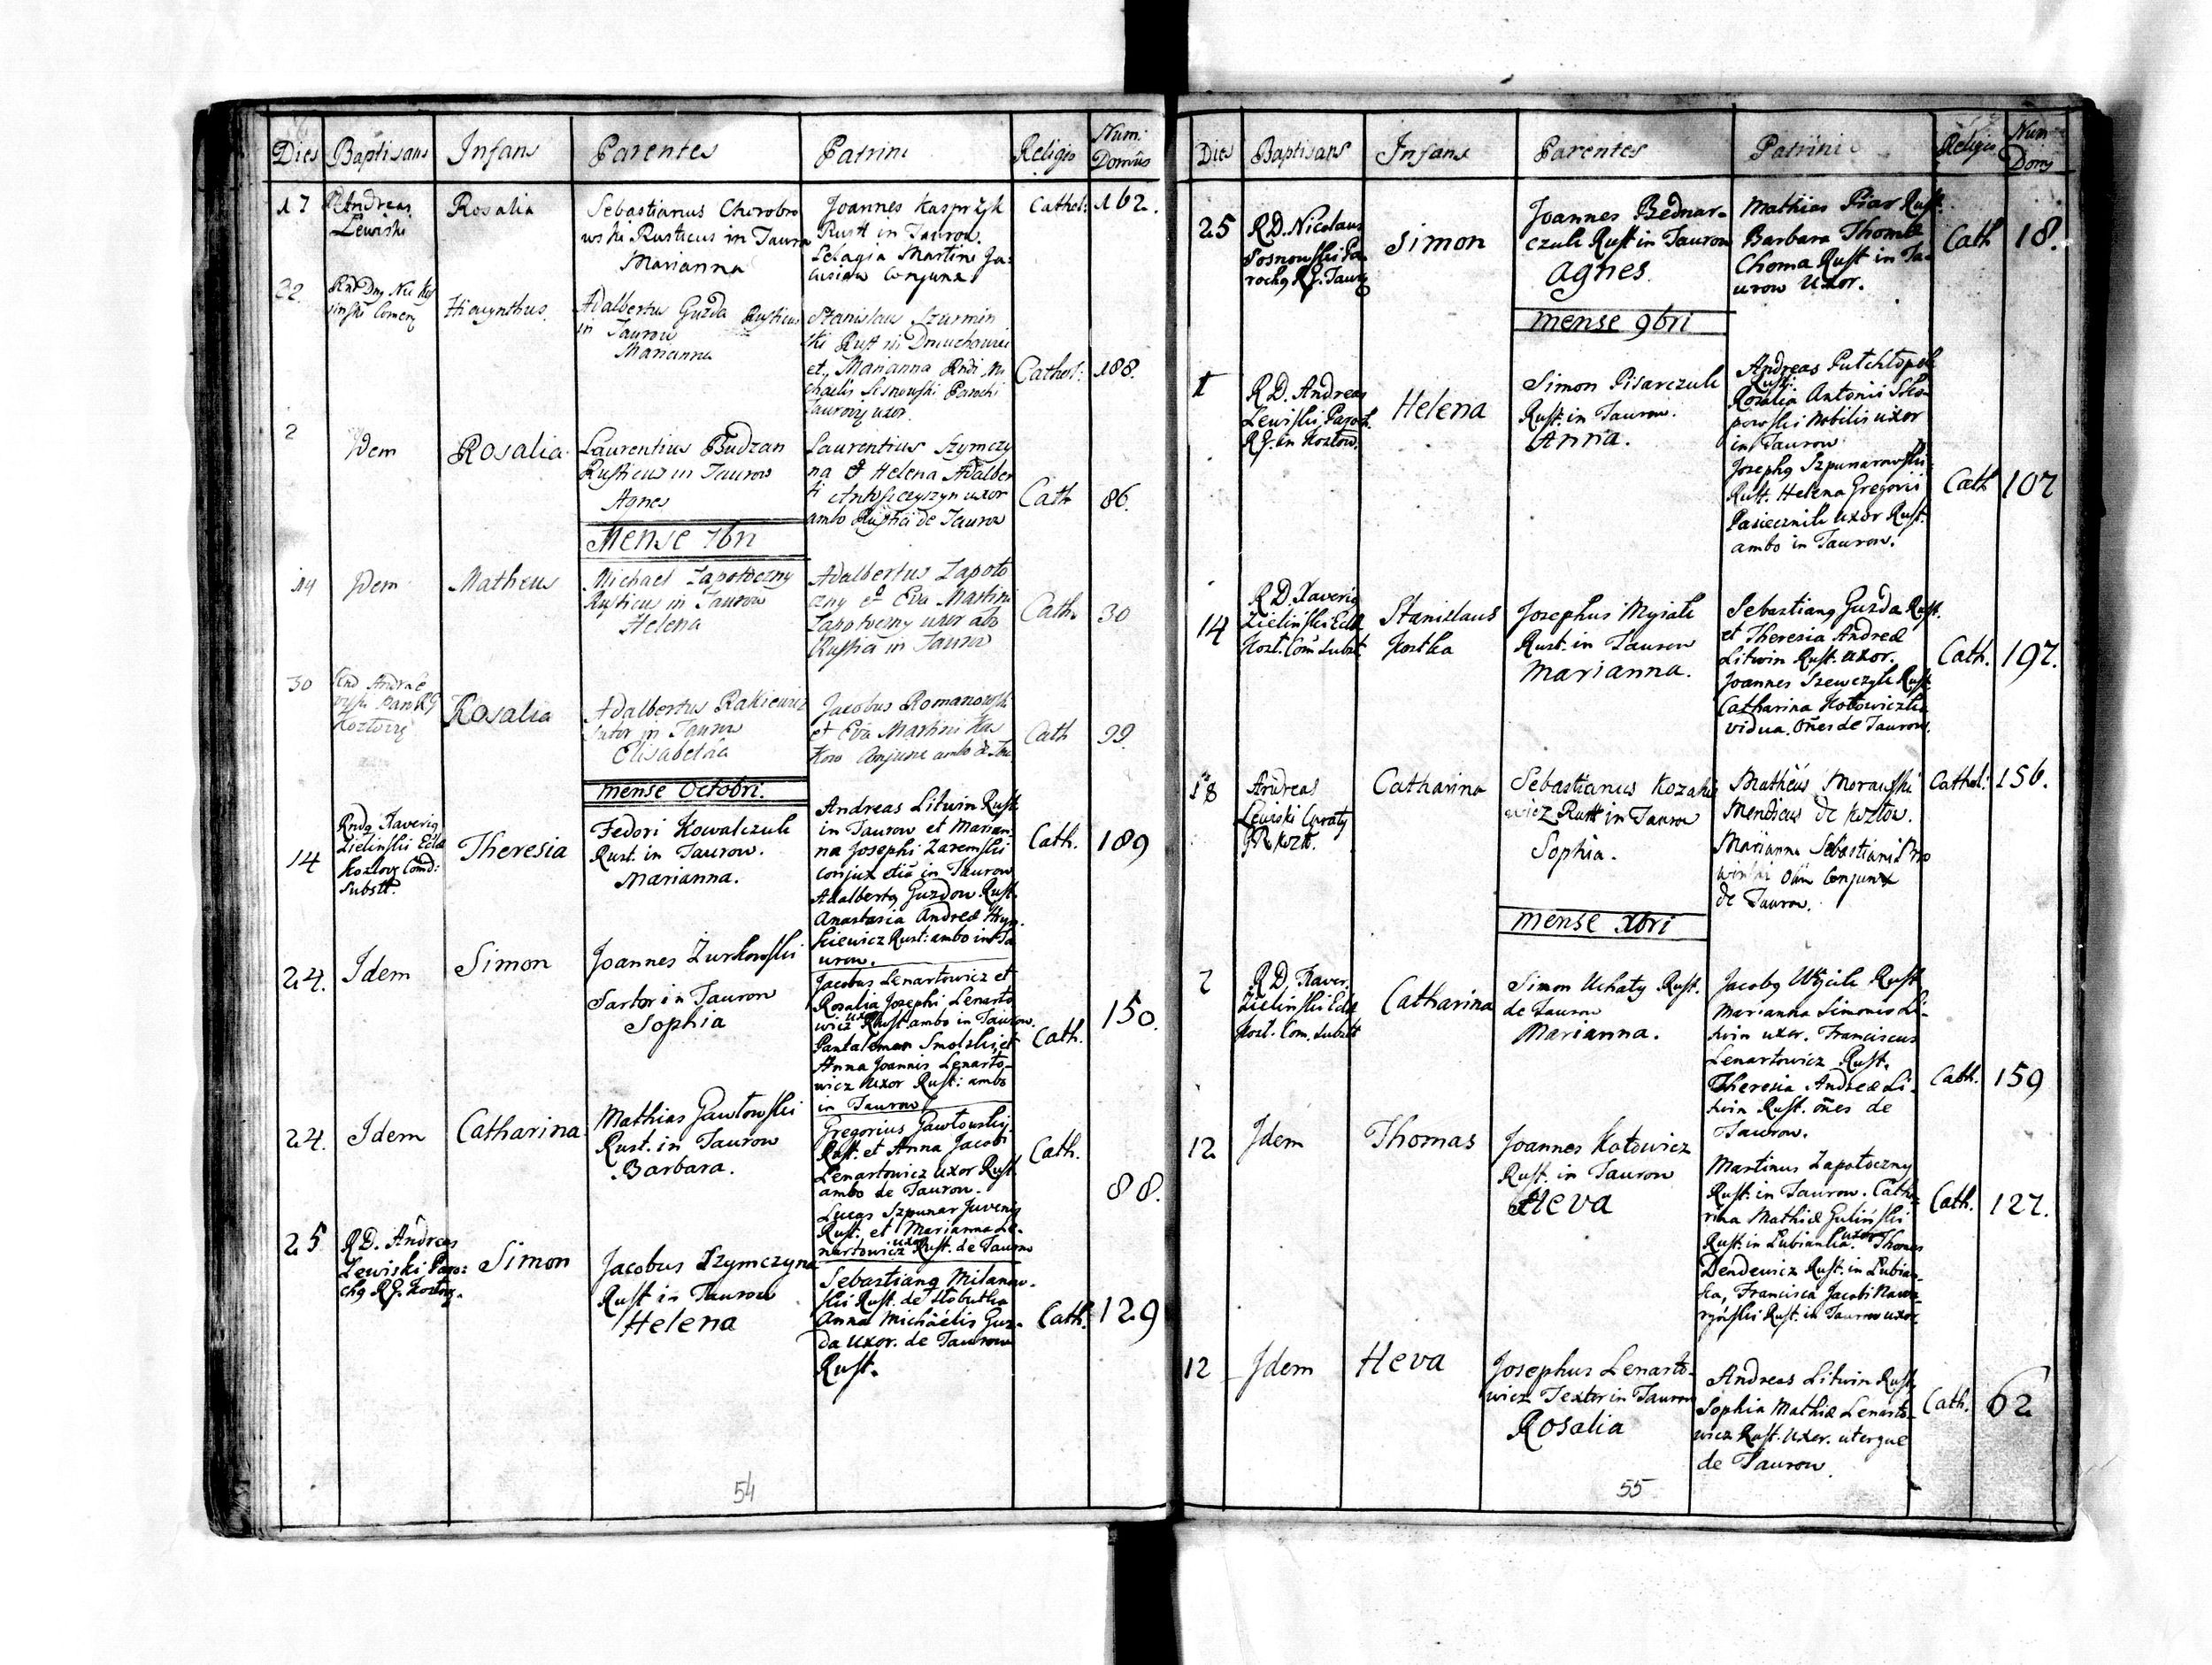 Dies Baptisans Infans Parentes Patrini Religio Num: Domûs
17 Andreas Lewiski
Rosalia
Sebastianus Chorobro
wski Rusticus in Taurow
Marianna
Joannes Kasprzyk
Rustt in Taurow.
Pelagia Martini
conjunx
Cathol: 162.
22.
Hiacynthus.
Adalbertus Guzda Rusticus
in Taurow
Marianna
Stanislaus Szurmin
ski Rustt in
et, Marianna Rndi Mi
chaelis Sosnowski Parochi
uxor.
Cathol: 188.
2
Idem
Rosalia
Laurentius Budzan
Rusticus in Taurow
Agnes
Laurentius Szymczy
na et Helena Adalber
ti uxor
ambo Rustici de Taurow
Cath 86.
Mense 7bri
14 Idem
Matheus
Michael Zapotoczny
Rusticus in Taurow
Helena
Adalbertus Zapoto
czny et Eva Martini
Zapotoczny uxor abo
Rustici in Taurow
Cath. 30
30
Rosalia
Adalbertus Rakiewicz
Sutor in Taurow
Elisabetha
Jacobus Romanowski
et Eva Martini
conjunx ambo de Tau.
Cath 99.
mense Octobri.
14
Rndq Xaveriq
Zieliński Eccl
Kozlovq Cõmd:
Substt.
Theresia
Fedori Kowalczuk
Rust. in Taurow.
Marianna.
Andreas Litwin Rust.
in Taurow et Marian-
na Josephi Zaremski
conjux etiã in Taurow
Adalbertq Guzdow Rust.
Anastasia Andreæ
kiewicz Rust: ambo in Ta
urow.
Cath. 189
24. Idem Simon
Joannes Żurkowski
Sartor in Taurow
Sophia
Jacobus Lenartowicz et
Rosalia Josephi Lenarto
uxor
wicz Rust ambo in Taurow.
Pantalemon Smolski, et
Anna Joannis Lenarto-
wicz Uxor Rust: ambo
in Taurow
Cath. 150.
24. Idem Catharina
Mathias Gawłowski
Rust. in Taurow
Barbara.
Gregorius Gawłowski
Rust. et Anna Jacobi
Lenartowicz Uxor Rust
ambo de Taurow.
Lucas Szpunar Juvenis
Rust. et Marianna Le-
uxor
nartowicz Rust. de Taurow
Cath. 88.
25
RD. Andreas
Lewiski Paro:
chq RG. Kozłovq.
Simon
Jacobus Szymczyna
Rust in Taurow
Helena
Sebastianq Milanow-
ski Rust. de Słobutka
Anna Michäelis Guz-
da Uxor. de Taurow
Rust.
Cath. 129
54
Dies Baptisans Infans Parentes Patrini Religio Num Domq
25
RD. Nicolaus
Sosnowski Pa-
rochq RG. Taurq
Simon
Joannes Bednar-
czuk Rust in Taurow
Agnes.
Mathias Pisar Rust.
Barbara Thomæ
Choma Rust in Ta-
urow Uxor.
Cath 18.
mense 9bri
1
RD. Andreas
Lewiski Paroch.
RG. in Kozłow.
Helena
Simon Pisarczuk
Rust. in Taurow.
Anna.
Andreas
Rust:
Rosalia Antonii Sło-
powski Nobilis uxor
in Taurow
Josephq Szpunarowski
Rust. Helena Gregorii
Pasiecznik uxor Rust.
ambo in Taurow.
Cath 107
14
RD. Xaveriq
Zieliński Eccl
Kozł. Com Subst.
Stanislaus
Kostka
Josephus Mysiak
Rust. in Taurow
Marianna.
Sebastianq Guzda Rust.
et Theresia Andreæ
Litwin Rust. uxor.
Joannes Szewczyk Rust.
Catharina Kotowiczka
vidua. Oñes de Taurow.
Cath. 197.
18
Andreas
Lewiski Curatq
GR Kozł.
Catharina
Sebastianus Kozake
wicz Rustt in Taurow
Sophia.
Mathëus Morawski
Mendicus de Kozłow.
Marianna Sebastiani
Conjunx
de Taurow.
Cathol: 156.
mense Xbri
2
RD, Xaver.
Zieliński Eccl
Kozł. Com. Substt
Catharina
Simon Uchaty Rust.
de Taurow
Marianna.
Jacobq Wójcik Rust.
Marianna Simonis Li-
twin uxor. Franciscus
Lenartowicz Rust.
Theresia Andreæ Li-
twin Rust. oñes de
Taurow.
Cath. 159
12 Idem Thomas
Joannes Kotowicz
Rust. in Taurow
Heva
Martinus Zapotoczny
Rust: in Taurow. Catha-
rina Mathiæ Guliński
uxor
Rust. in Łubianka. Thomas
Dendewicz Rust: in Łubian-
ka, Francisca Jacobi Nawa-
ryński Rust. in Taurow uxor.
Cath. 127.
12 Idem Heva
Josephus Lenarto-
wicz Textor in Taurow
Rosalia
Andreas Litwin Rust.
Sophia Mathiæ Lenarto-
wicz Rust. Uxor. uterque
de Taurow.
Cath. 62
55